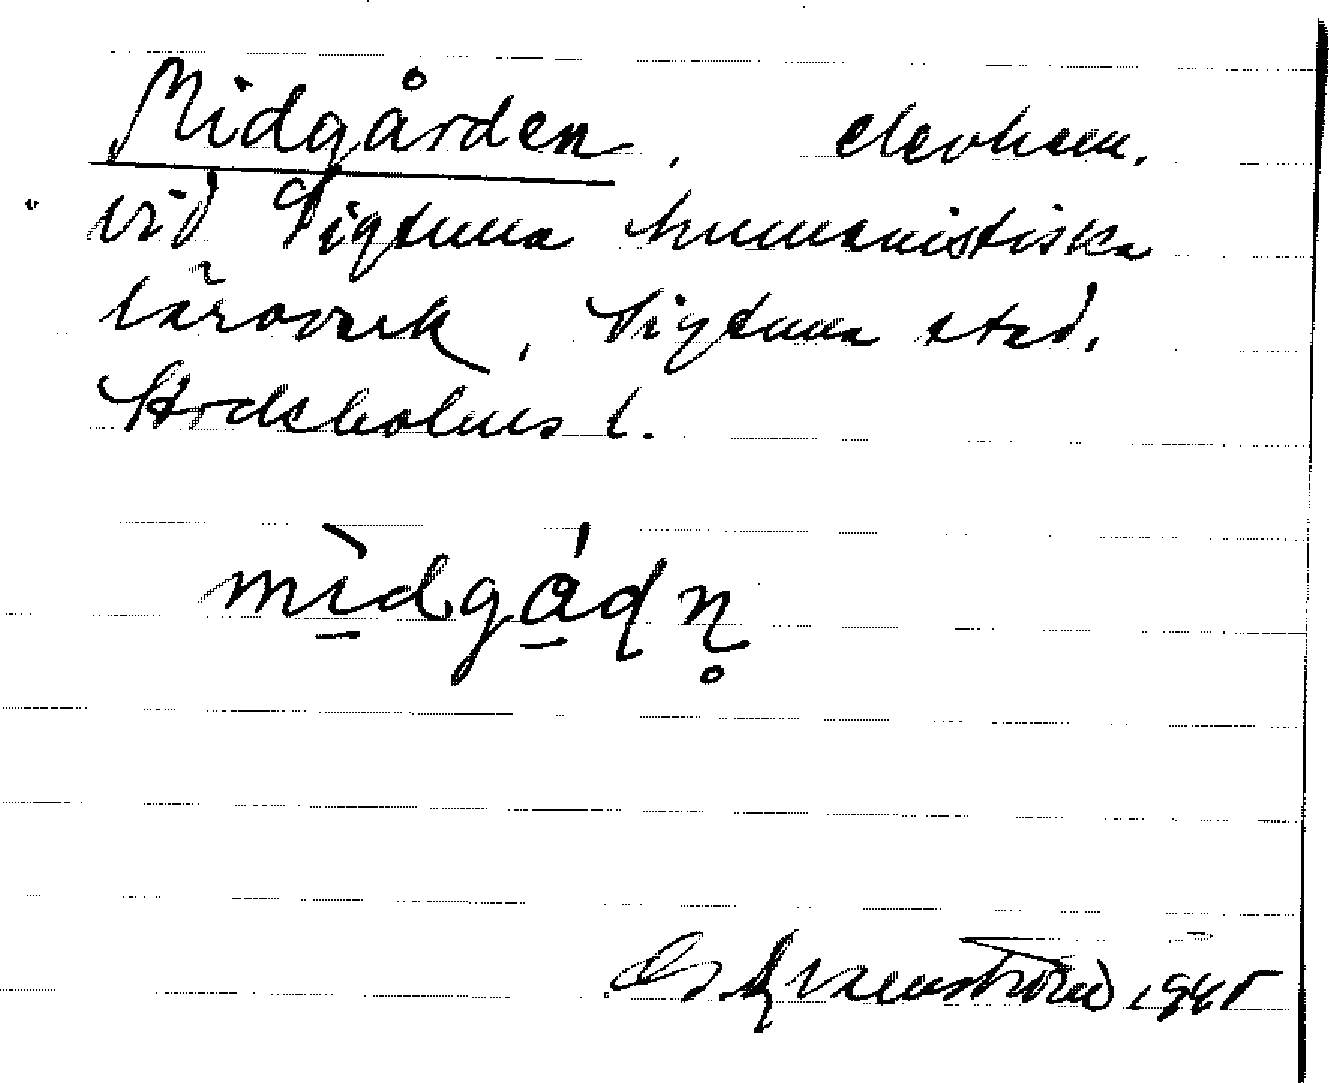 Midgården, elevhem
vid Sigtuna humanistiska
läroverk, Sigtuna stad,
Stockholms l.
mìdgádn̥